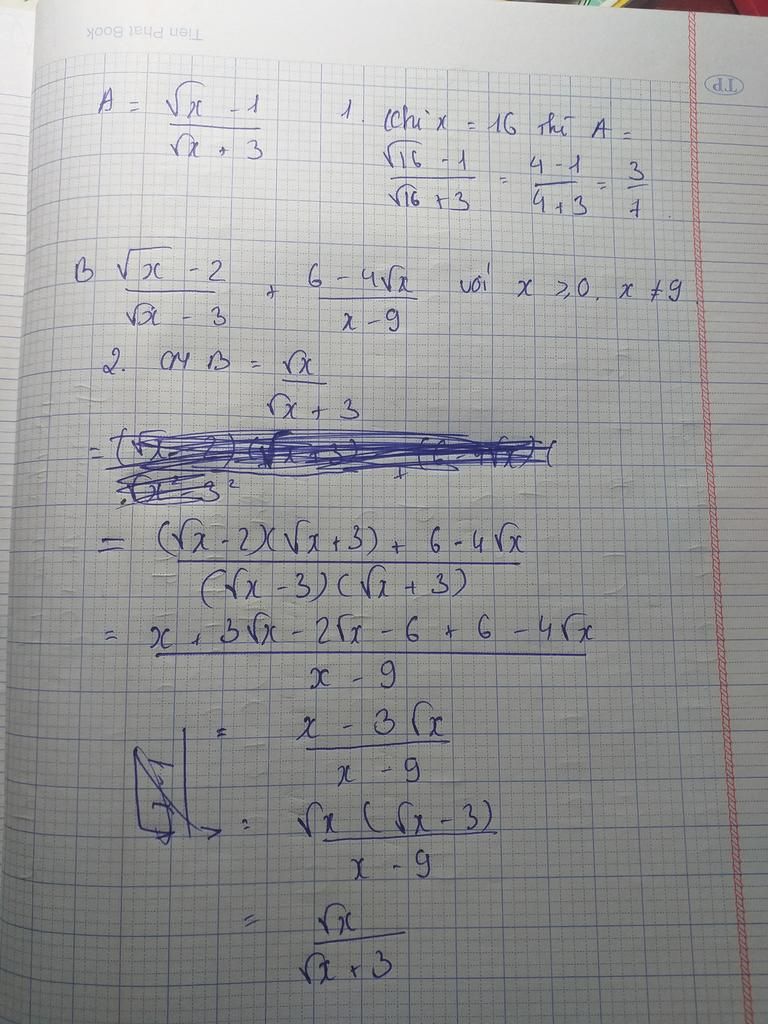 Tien Phat Book
TP
A = \frac{\sqrt{x} - 1}{\sqrt{x} + 3}
1. Khi x = 16 thì A =
\frac{\sqrt{16} - 1}{\sqrt{16} + 3} = \frac{4 - 1}{4 + 3} = \frac{3}{7}
B \frac{\sqrt{x} - 2}{\sqrt{x} - 3} + \frac{6 - 4\sqrt{x}}{x - 9} với x ≥ 0. x ≠ 9
2. CM B = \frac{\sqrt{x}}{\sqrt{x} + 3}
= \frac{(\sqrt{x} - 2)(\sqrt{x} + 3) + 6 - 4\sqrt{x}}{(\sqrt{x} - 3)(\sqrt{x} + 3)}
= \frac{x + 3\sqrt{x} - 2\sqrt{x} - 6 + 6 - 4\sqrt{x}}{x - 9}
= \frac{x - 3\sqrt{x}}{x - 9}
= \frac{\sqrt{x}(\sqrt{x} - 3)}{x - 9}
= \frac{\sqrt{x}}{\sqrt{x} + 3}